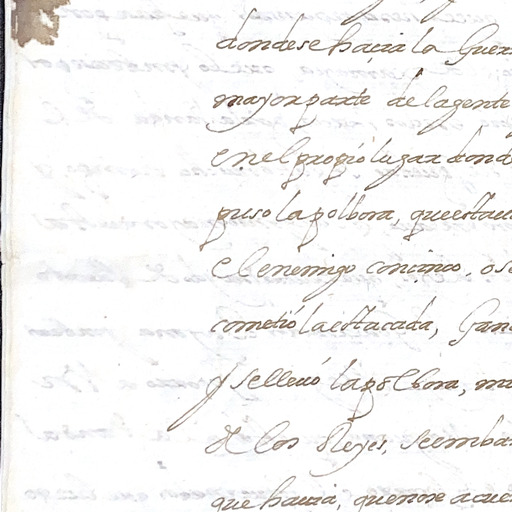 donde se haçia la Guer
mayor parte de la gente
en el propio lugar dond
puso la polbora, que estau
el enemigo con cinco, o se
cometió la estacada, Gan
y se lleuó la polbora, mu
de los Reyes, se embar
que hauia, que no se acue